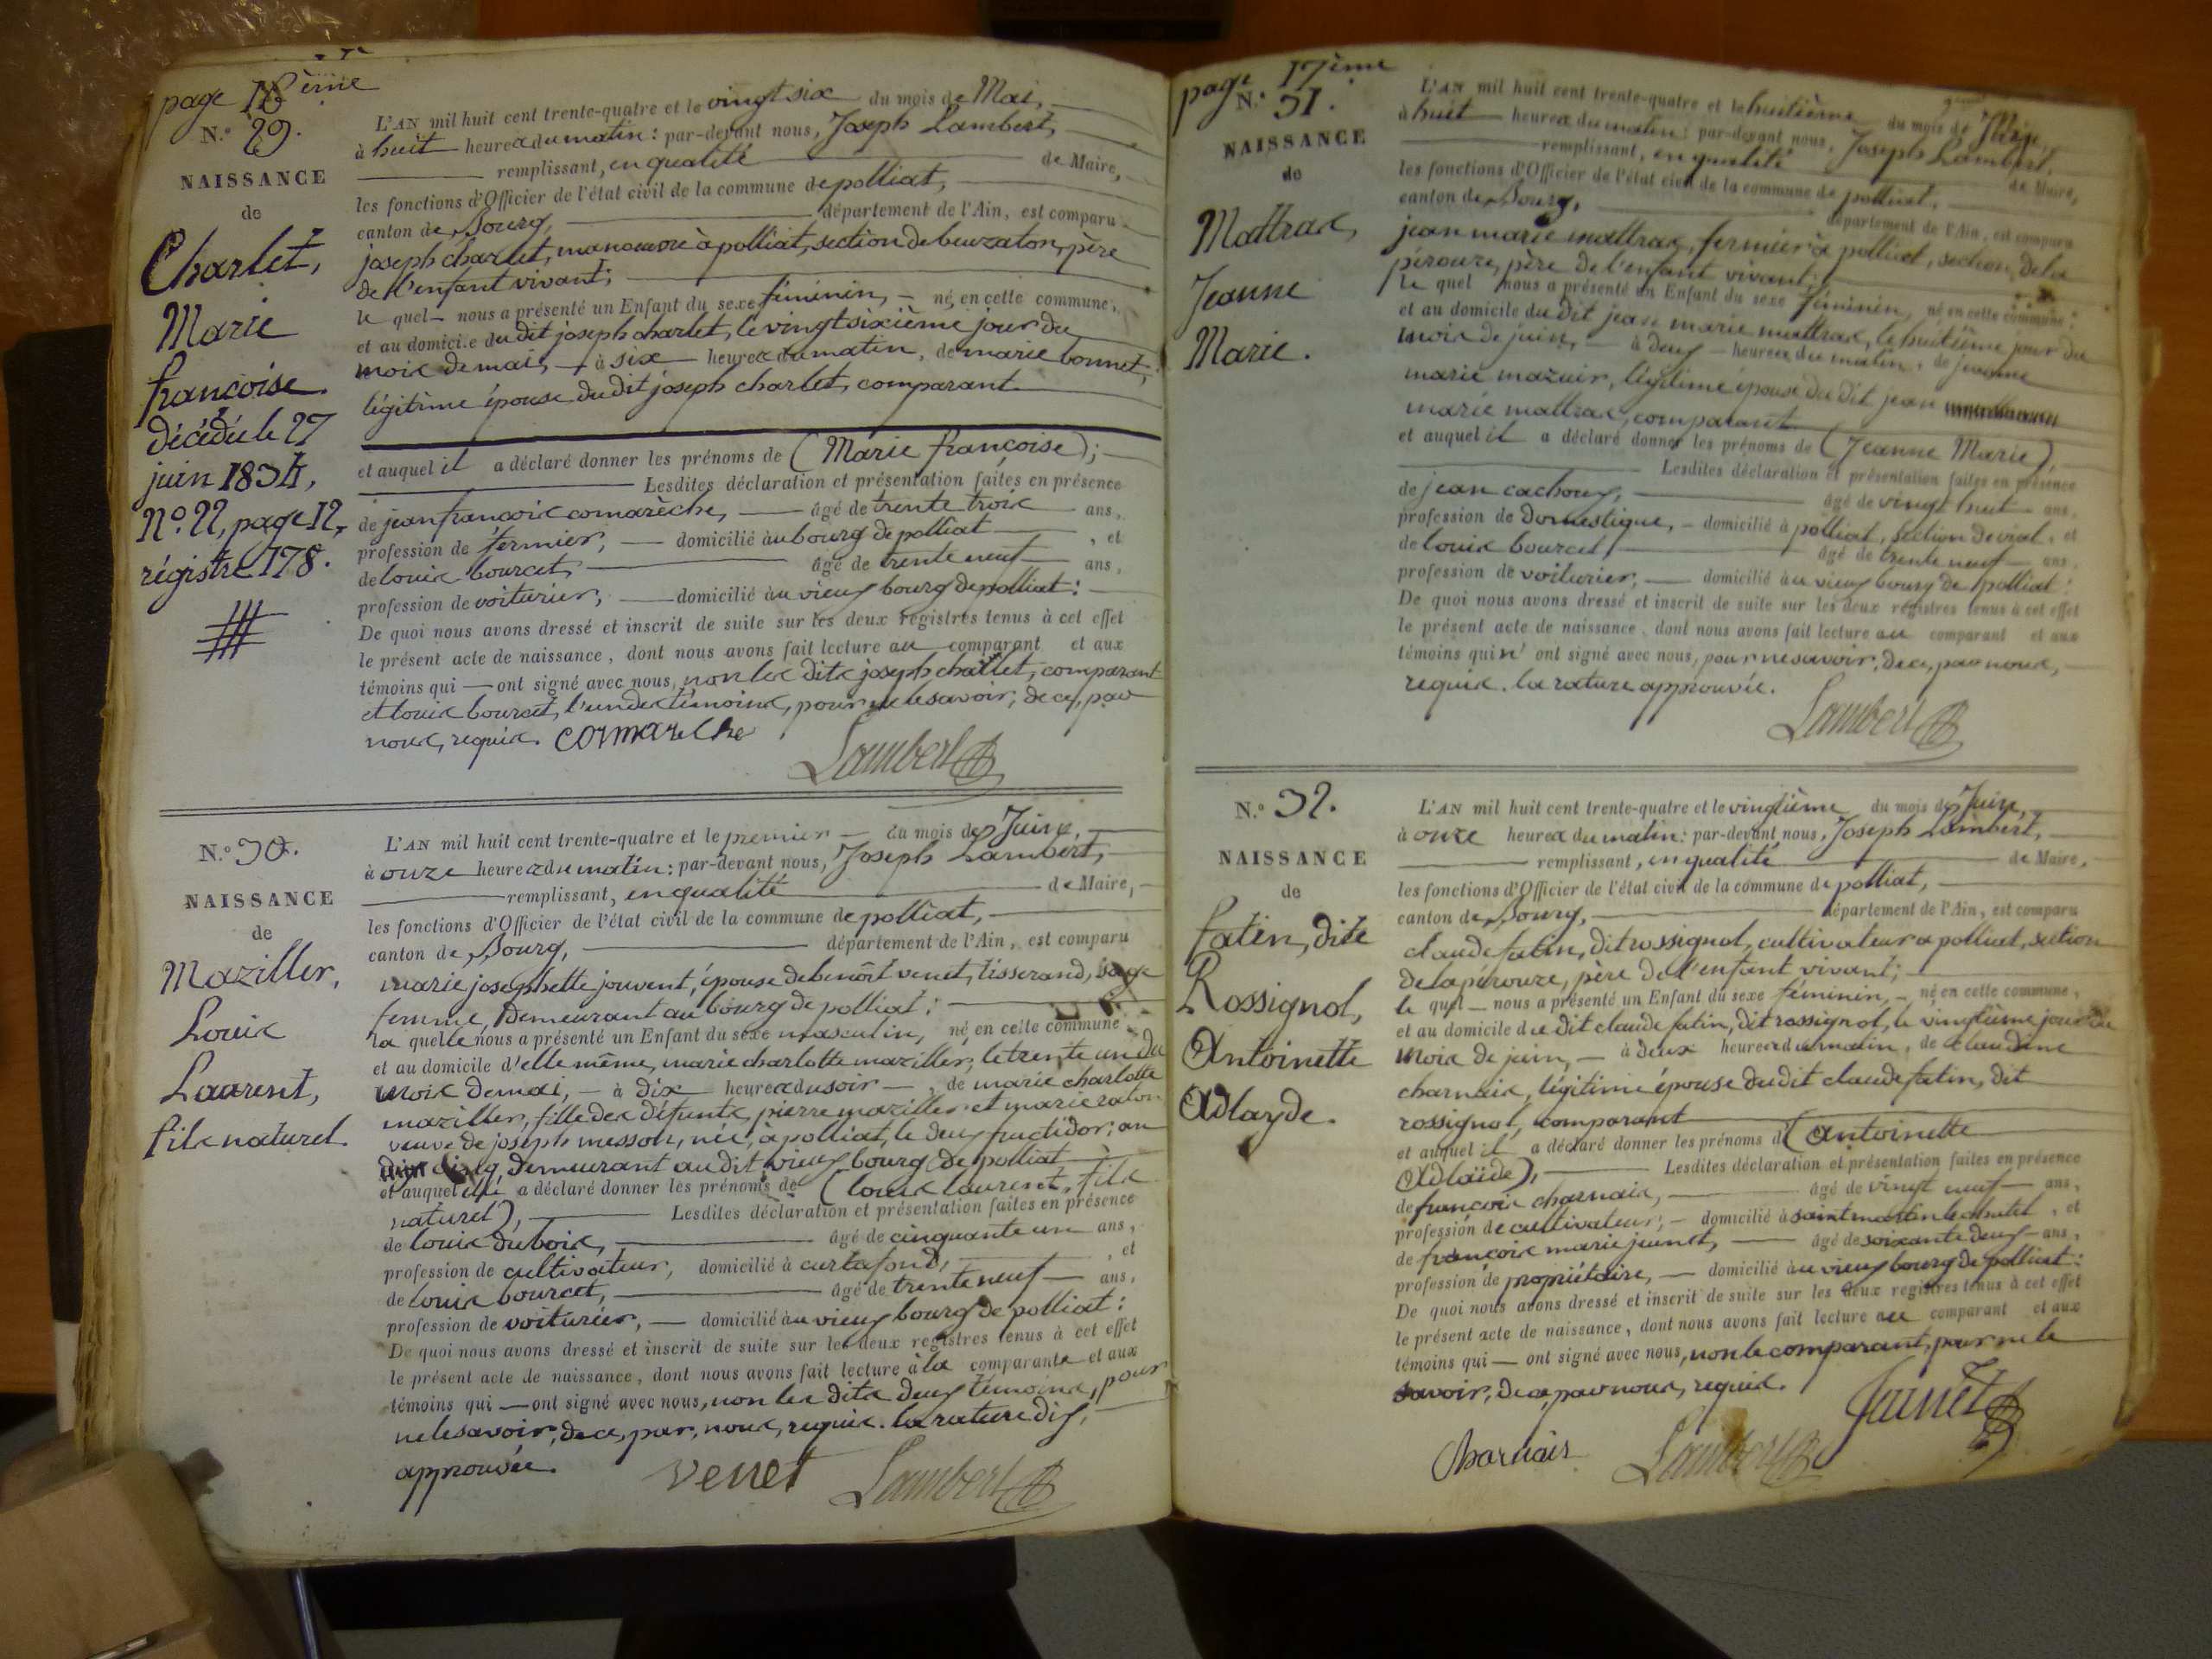 page 16ème
N.° 29.
NAISSANCE
de
Charlet,
Marie
françoise.
décédée le 27
juin 1834,
N.° 22, page 12,
régistre 178.
L'AN mil huit cent trente-quatre et le vingt six du mois de Mai,
à huit heures du matin : par-devant nous, Joseph Lambert,
remplissant, en qualité de Maire,
les fonctions d'Officier de l'état civil de la commune de polliat,
canton de Bourg, département de l'Ain, est comparu
joseph charlet, manoeuvre à polliat, section de beuzaton, père
de l'enfant vivant;
le quel nous a présenté un Enfant du sexe féminin, né en cette commune,
et au domicile du dit joseph charlet, le vingt sixième jour du
mois de mai, à six heures du matin, de marie bonnet,
légitime épouse du dit joseph charlet, comparant
et auquel il a déclaré donner les prénoms de (Marie françoise);
Lesdites déclaration et présentation faites en présence
de jean francois comarèche, âgé de trente trois ans,
profession de fermier, domicilié au bourg de polliat, et
de louis bourcet, âgé de trente neuf ans,
profession de voiturier, domicilié au vieux bourg de polliat :
De quoi nous avons dressé et inscrit de suite sur les deux registres tenus à cet effet
le présent acte de naissance, dont nous avons fait lecture au comparant et aux
témoins qui ont signé avec nous, non les dits joseph challet, comparant
et louis bourcet, l'un des témoins, pour ne le savoir, de ce, par
nous, requis. cormareche
Lambert
N.° 30.
NAISSANCE
de
Maziller,
Louis
Laurent,
fils naturel.
L'AN mil huit cent trente-quatre et le premier du mois de Juin,
à onze heures du matin : par-devant nous, Joseph Lambert,
remplissant, en qualité de Maire,
les fonctions d'Officier de l'état civil de la commune de polliat,
canton de Bourg, département de l'Ain, est comparu
marie josephette jouvent, épouse de benoît venet, tisserand, sage
femme, demeurant au bourg de polliat ;
la quelle nous a présenté un Enfant du sexe masculin, né en cette commune
et au domicile d'elle même, marie charlotte maziller, le trente un du
mois de mai, à dix heures du soir, de marie charlotte
maziller, fille des défunts, pierre maziller et marie
veuve de joseph messon, née, à polliat, le deux fructidor, an
cinq, demeurant au dit vieux bourg de polliat
et auquel elle a déclaré donner les prénoms de (louis laurent, fils
naturel), Lesdites déclaration et présentation faites en présence
de louis dubois, âgé de cinquante un ans,
profession de cultivateur, domicilié à curtafond, et
de louis bourcet, âgé de trente neuf ans,
profession de voiturier, domicilié au vieux bourg de polliat :
De quoi nous avons dressé et inscrit de suite sur les deux registres tenus à cet effet
le présent acte de naissance, dont nous avons fait lecture à la comparante et aux
témoins qui ont signé avec nous, non les dits deux témoins, pour
ne le savoir, de ce, par, nous, requis. la rature dix,
approuvée.
venet Lambert
page 17ème
N.° 31.
NAISSANCE
de
Mattras,
Jeanne
Marie.
L'AN mil huit cent trente-quatre et le huitième du mois de Juin,
à huit heures du matin : par-devant nous, Joseph Lambert,
remplissant, en qualité de Maire,
les fonctions d'Officier de l'état civil de la commune de polliat,
canton de Bourg, département de l'Ain, est comparu
jean marie mattras, fermier à polliat, section de la
pérouze, père de l'enfant vivant;
le quel nous a présenté un Enfant du sexe féminin, né en cette commune,
et au domicile du dit jean marie mattras, le huitième jour du
mois de juin, à deux heures du matin, de jeanne
marie mazuir, légitime épouse du dit jean
marie mattras, comparant
et auquel il a déclaré donner les prénoms de (Jeanne Marie),
Lesdites déclaration et présentation faites en présence
de jean cachoux, âgé de vingt huit ans,
profession de domestique, domicilié à polliat, section de vial, et
de louis bourcet, âgé de trente neuf ans,
profession de voiturier, domicilié au vieux bourg de polliat :
De quoi nous avons dressé et inscrit de suite sur les deux registres tenus à cet effet
le présent acte de naissance, dont nous avons fait lecture au comparant et aux
témoins qui n'ont signé avec nous, pour ne savoir, de ce, par nous,
requis. la rature approuvée.
Lambert
N.° 32.
NAISSANCE
de
fatin, dite
Rossignol,
Antoinette
Adlayde.
L'AN mil huit cent trente-quatre et le vingtième du mois de Juin,
à onze heures du matin : par-devant nous, Joseph Lambert,
remplissant, en qualité de Maire,
les fonctions d'Officier de l'état civil de la commune de polliat,
canton de Bourg, département de l'Ain, est comparu
claude fatin, dit rossignol, cultivateur à polliat, section
de la pérouze, père de l'enfant vivant;
le quel nous a présenté un Enfant du sexe féminin, né en cette commune,
et au domicile du dit claude fatin, dit rossignol, le vingtième jour du
mois de juin, à deux heures du matin, de claudine
charnais, légitime épouse du dit claude fatin, dit
rossignol, comparant
et auquel il a déclaré donner les prénoms d'(Antoinette
Adlaïde), Lesdites déclaration et présentation faites en présence
de françois charnais, âgé de vingt neuf ans,
profession de cultivateur, domicilié à saint martin le chatel, et
de françois marie jeunet, âgé de soixante deux ans,
profession de propriétaire, domicilié au vieux bourg de polliat :
De quoi nous avons dressé et inscrit de suite sur les deux registres tenus à cet effet
le présent acte de naissance, dont nous avons fait lecture au comparant et aux
témoins qui ont signé avec nous, non le comparant, pour ne le
savoir, de ce, par nous, requis.
Charnais Lambert Junet